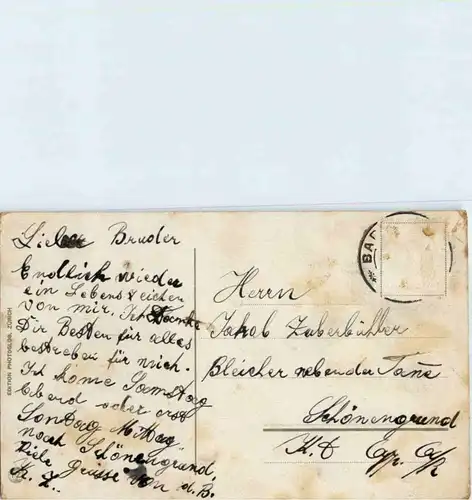 Lieber Bruder
Endlich wieder
ein Lebenszeichen
von mir. Ich Danke
Dir Besten für alles
bestrebai für mich.
Ich kome Samstag
Abend oder erst
Sontag Mittag
nach Schönengrund.
Viele Grüsse von d. B.
K. Z.
EDITION PHOTOGLOB, ZÜRICH
BAD
Herrn
Jakob Zuberbühler
Bleicher neben der Tane
Schönengrund
Kt. Ap. A/R